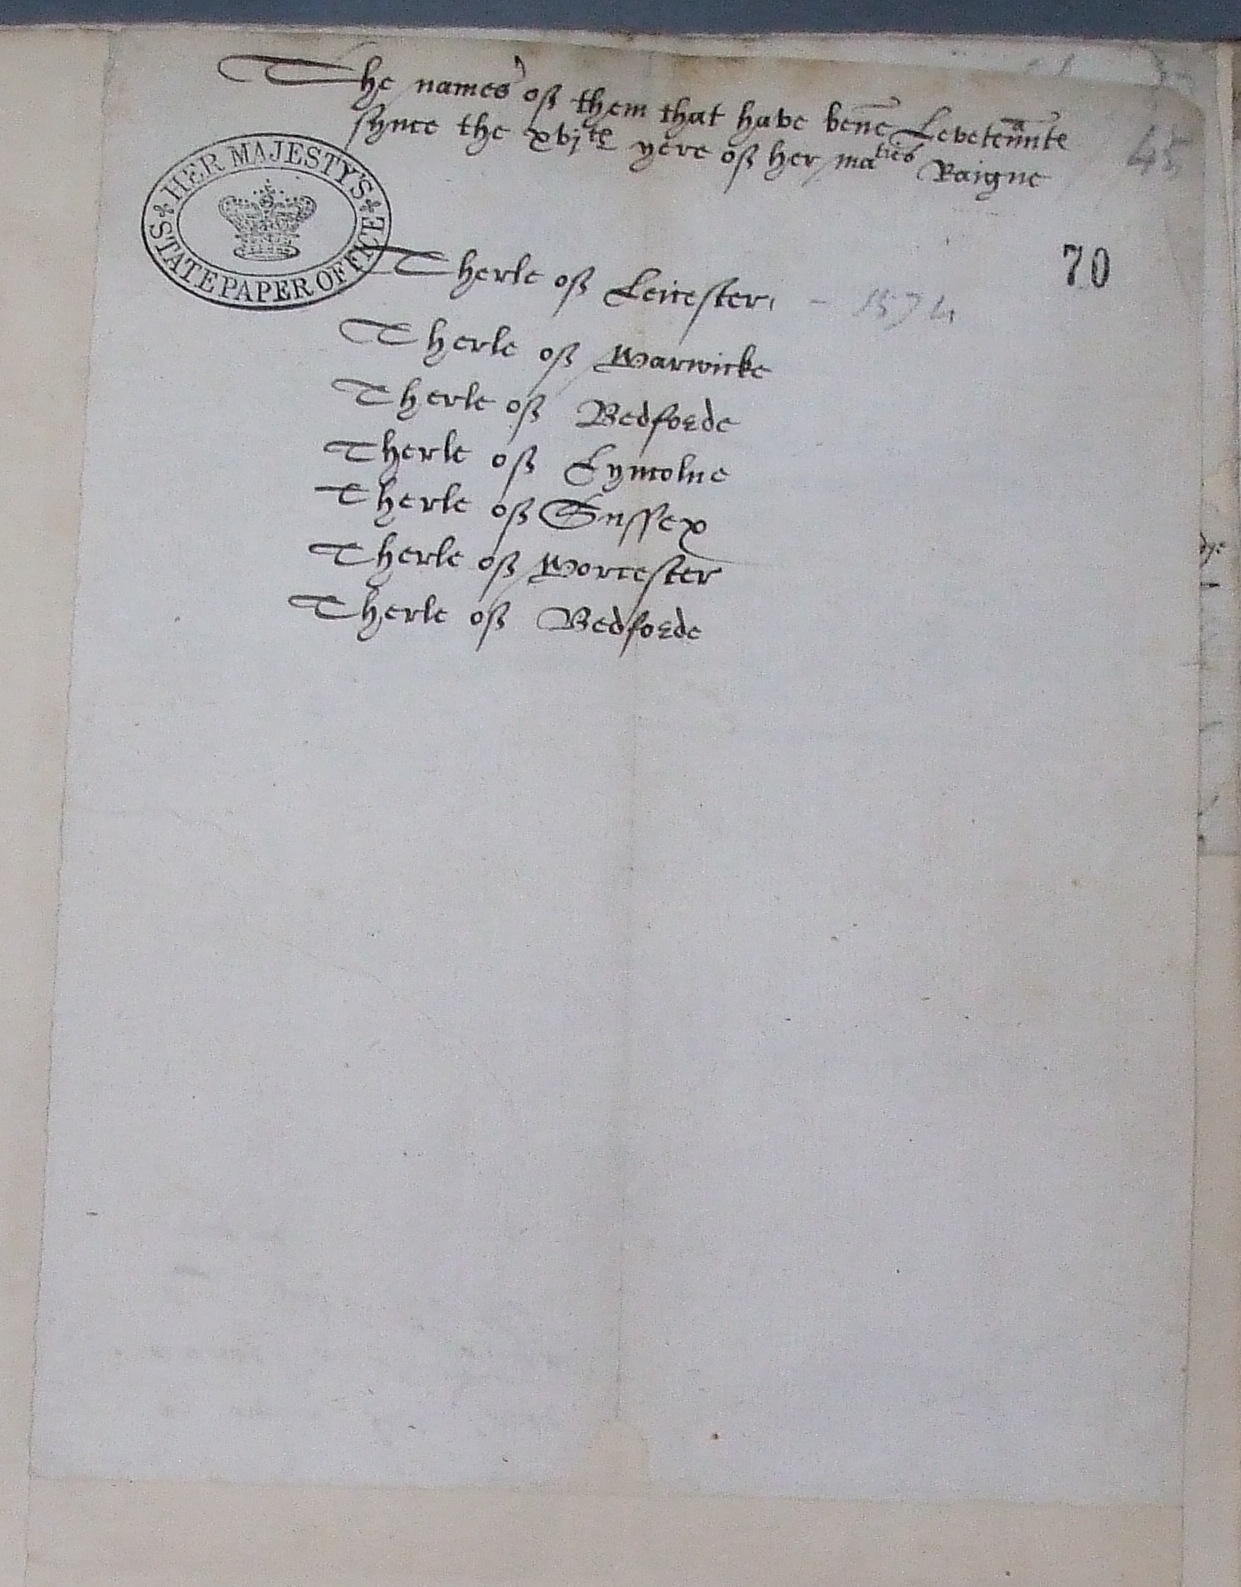 The names off them that have bene Levetennte
synce the xvjte yere off her maties Raigne
45
HER MAJESTY'S
STATE PAPER OFFICE
70
Therle off Leicester - 1574
Therle off Warwicke
Therle off Bedforde
Therle off Lyncolne
Therle off Sussex
Therle off Worcester
Therle off Bedforde